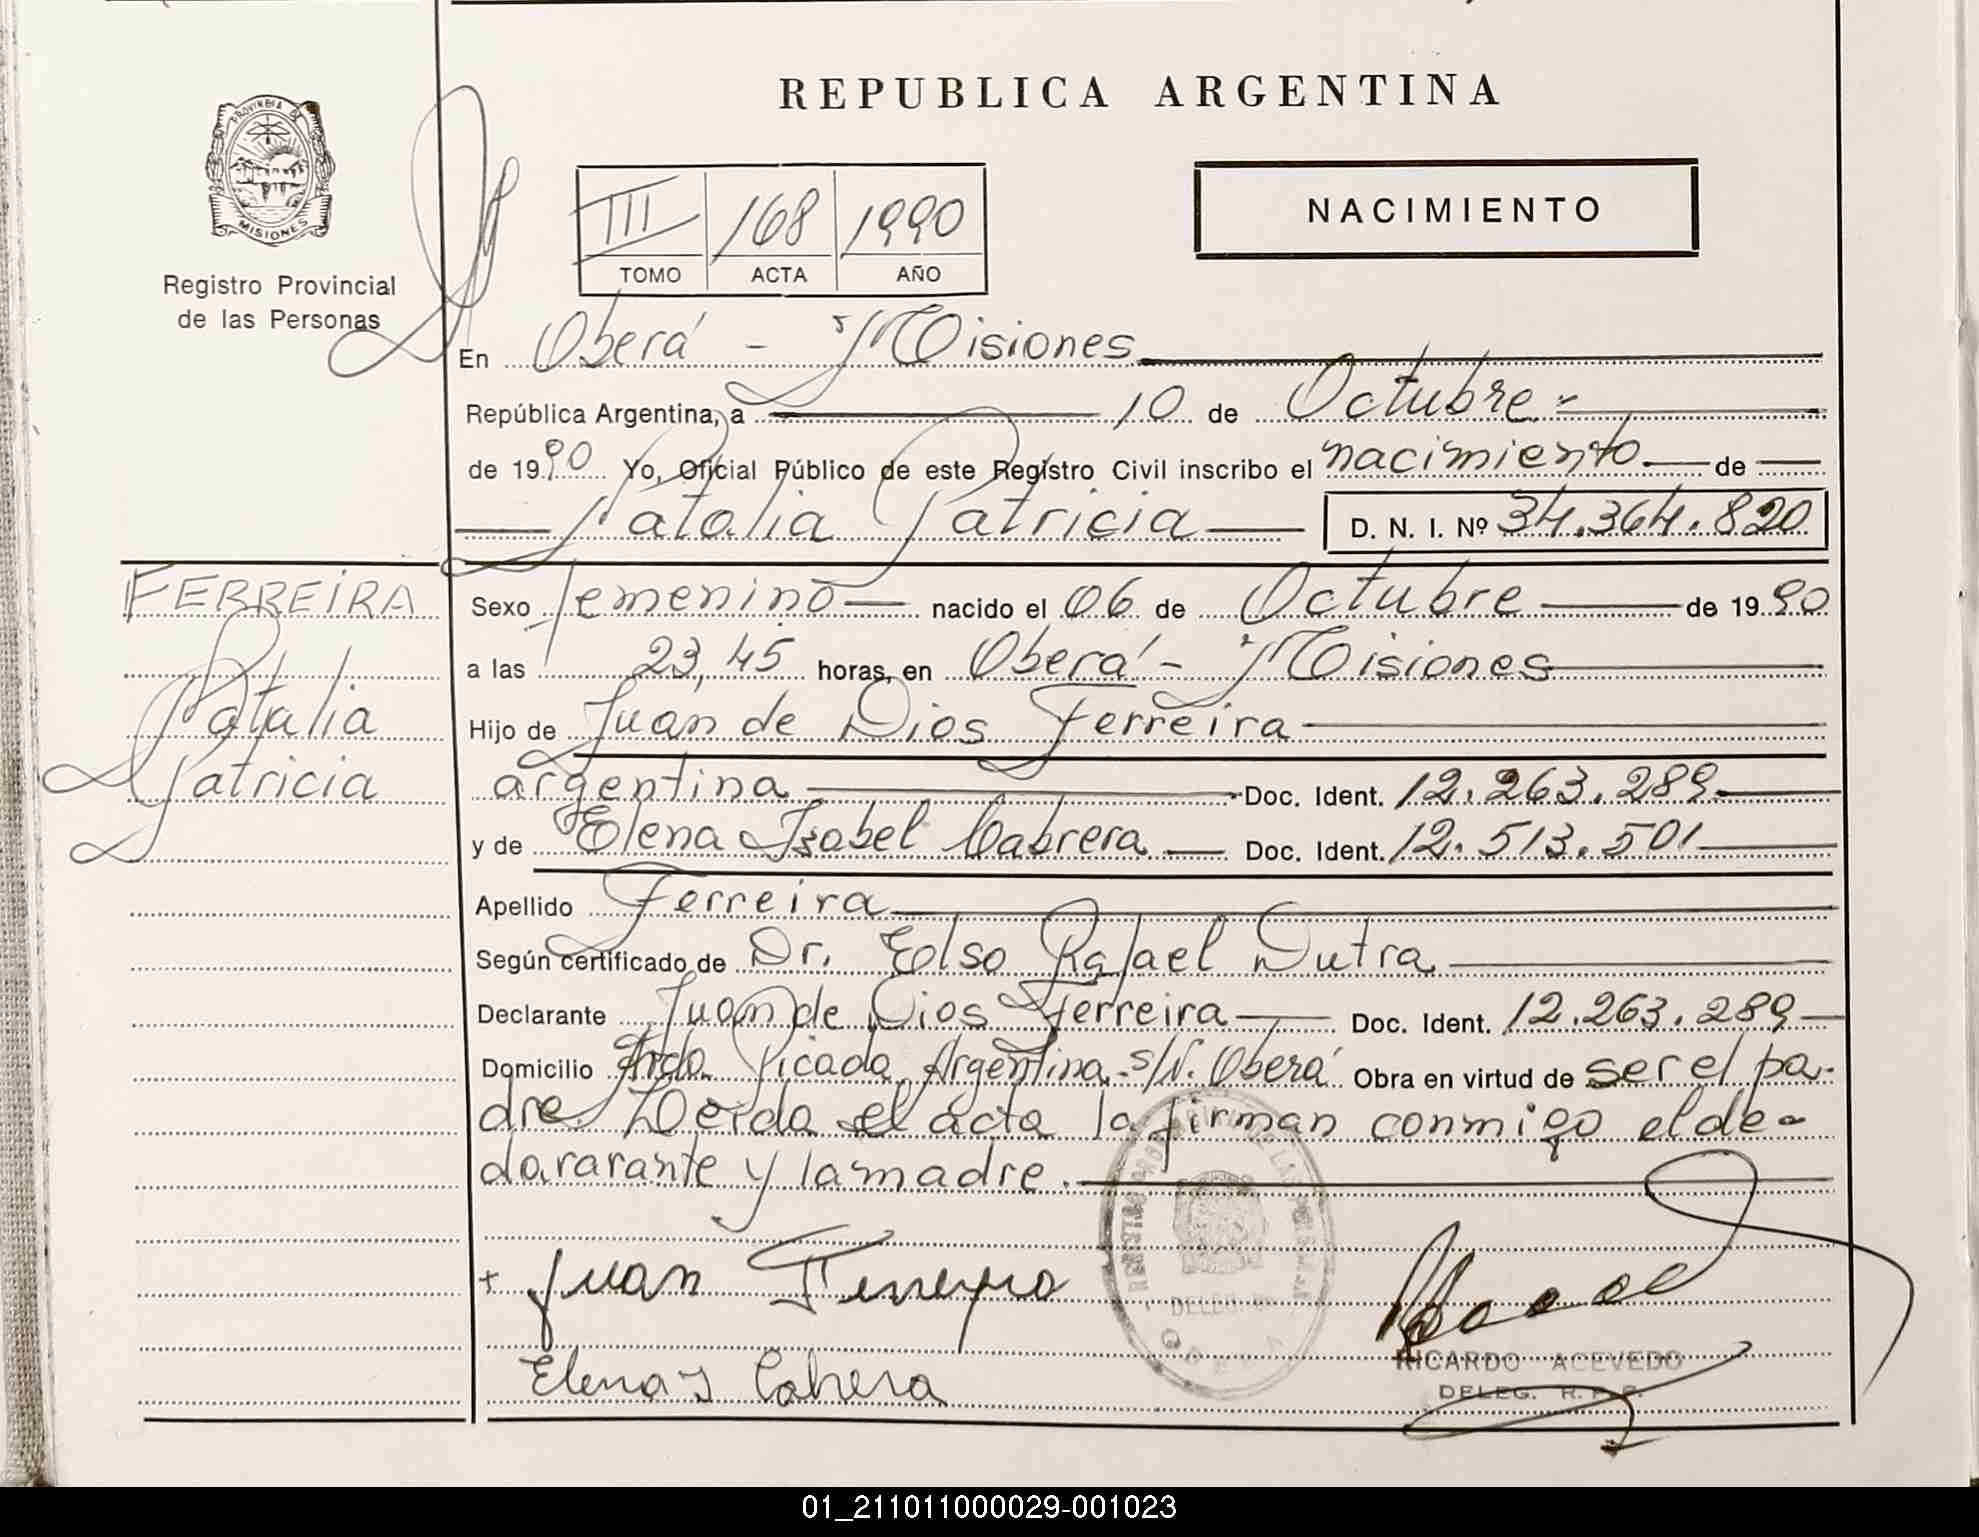 REPUBLICA ARGENTINA
PROVINCIA DE
MISIONES
Registro Provincial
de las Personas
III 168 1990
TOMO ACTA AÑO
NACIMIENTO
En Oberá - Misiones
República Argentina, a 10 de Octubre
de 1990 Yo, Oficial Público de este Registro Civil inscribo el nacimiento de
Natalia Patricia D. N. I. Nº 34.364.820
FERREIRA
Natalia
Patricia
Sexo femenino nacido el 06 de Octubre de 1990
a las 23,45 horas, en Oberá - Misiones
Hijo de Juan de Dios Ferreira
argentina Doc. Ident. 12.263.289
y de Elena Isabel Cabrera Doc. Ident. 12.513.501
Apellido Ferreira
Según certificado de Dr. Elso Rafael Dutra
Declarante Juan de Dios Ferreira Doc. Ident. 12.263.289
Domicilio Picada Argentina s/N. Oberá Obra en virtud de ser el pa-
dre. Leida el acta la firman conmigo el de-
clararante y la madre.
Juan Ferreyra
Elena I Cabrera
RICARDO ACEVEDO
DELEG. R. P. P.
01_211011000029-001023